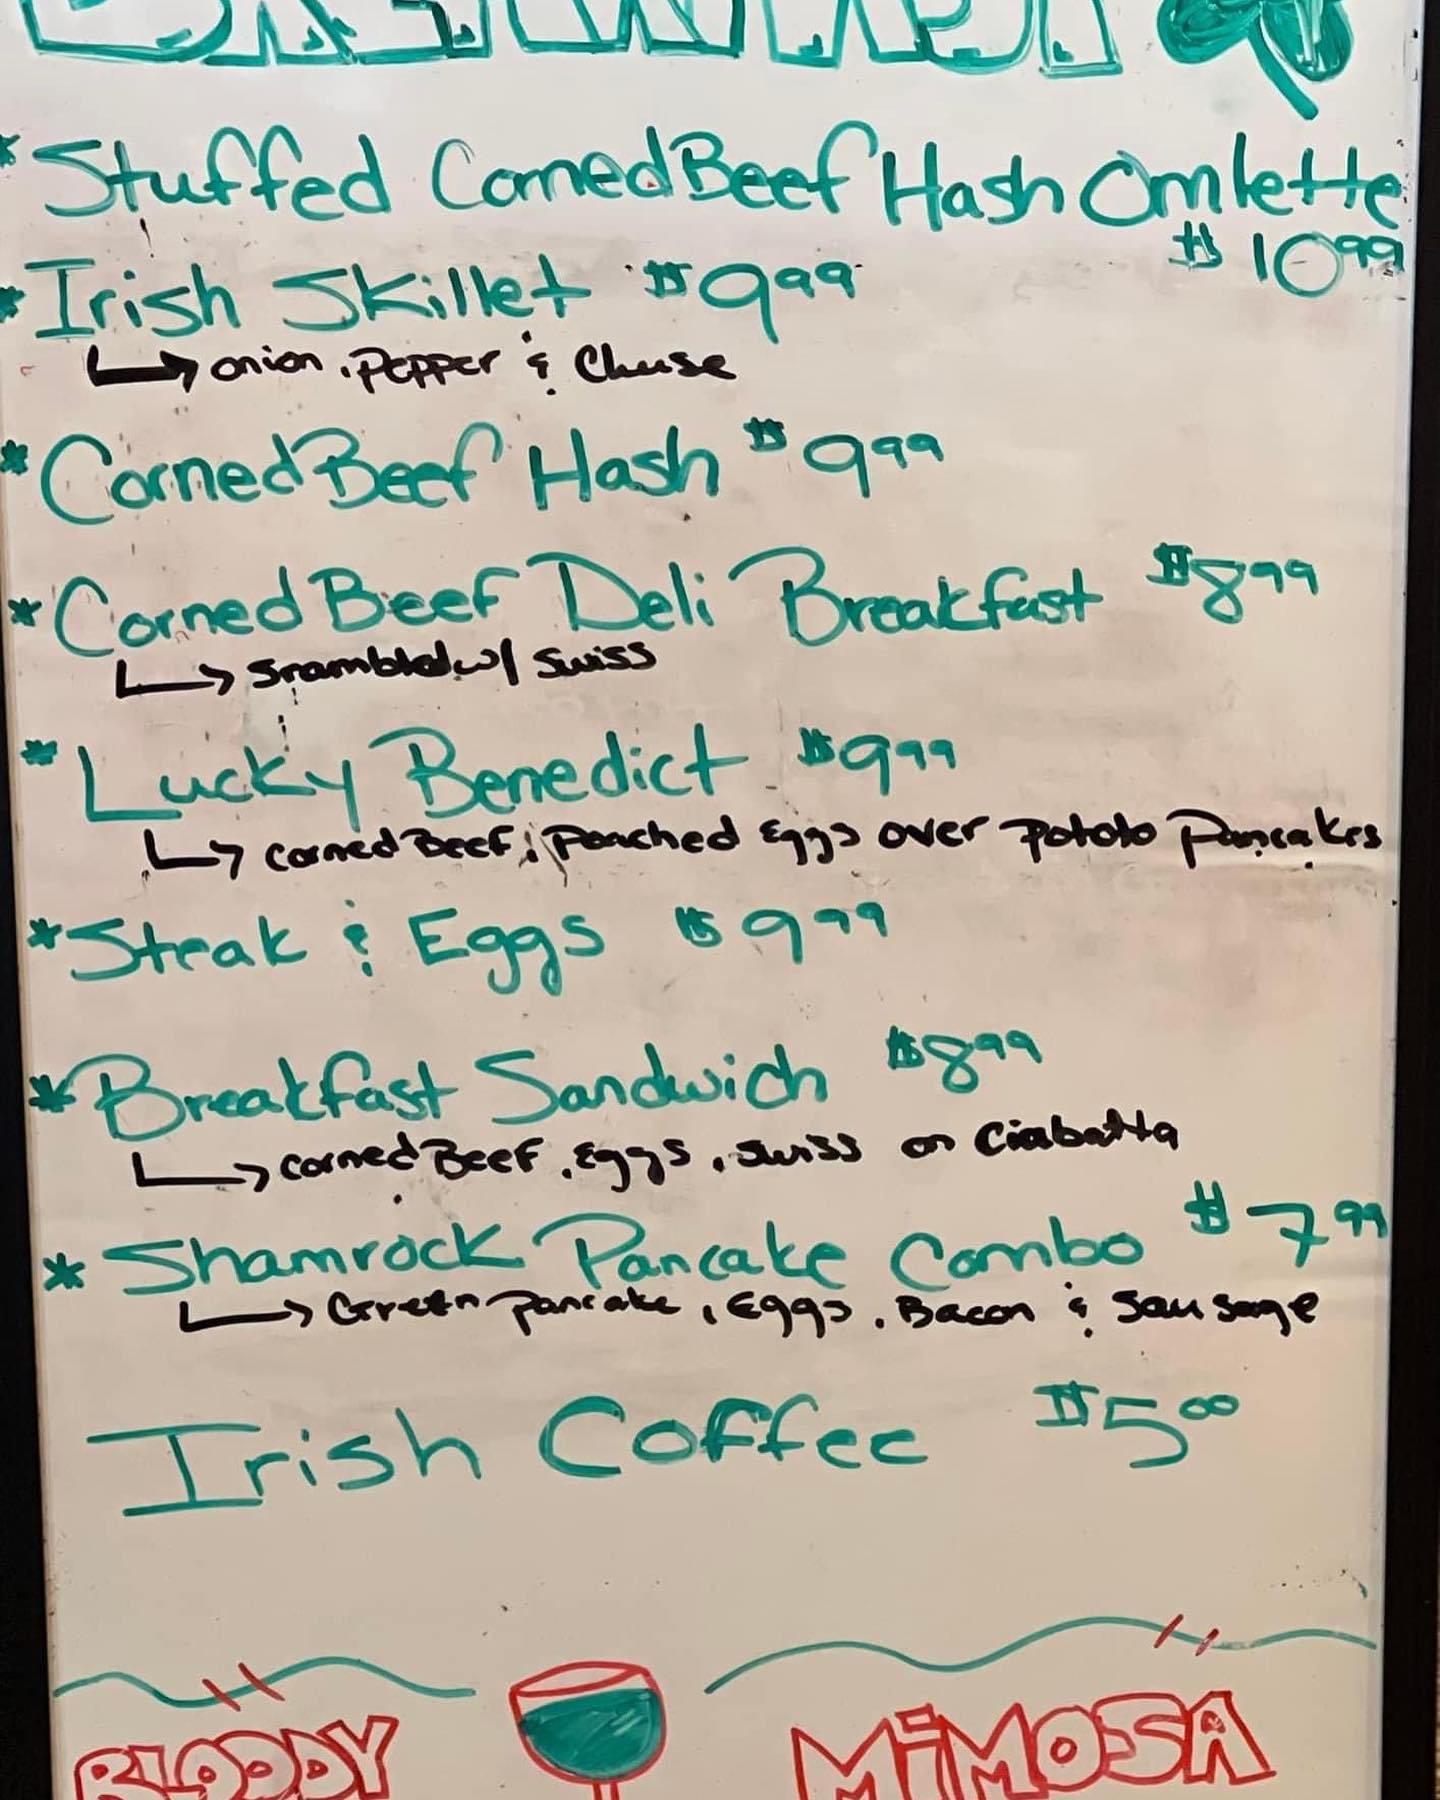 * Stuffed Corned Beef Hash Omlette
$10.99
* Irish Skillet $9.99
onion, Pepper & Cheese
* Corned Beef Hash $9.99
* Corned Beef Deli Breakfast $8.99
Srambled w/ Swiss
* Lucky Benedict $9.99
corned Beef, Poached Eggs over Pototo Pancakes
* Steak & Eggs $9.99
* Breakfast Sandwich $8.99
corned Beef, Eggs, Swiss on Ciabatta
* Shamrock Pancake Combo $7.99
Green Pancake, Eggs, Bacon & Sausage
Irish Coffee $5.00
BLOODY MiMOSA